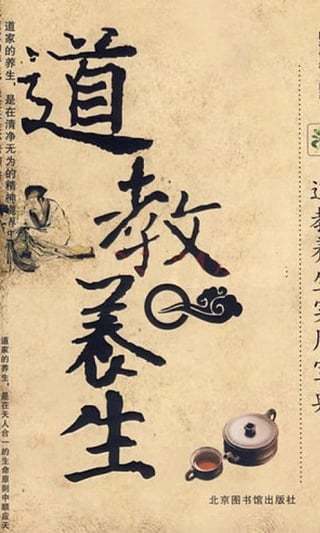 道教养生
道家的养生，是在清净无为的精神
道家的养生，是在天人合一的生命原则中顺应天
北京图书馆出版社